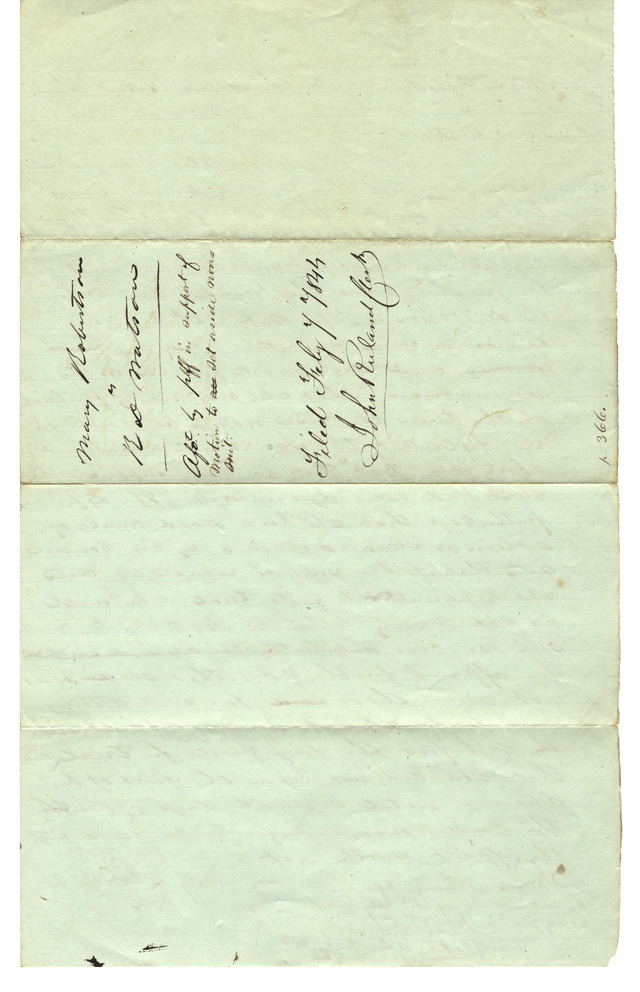 Mary Robertson
vs
R D Watson
Afft. by plff in support of
Motion to set aside non
suit.
Filed Feby 7 1844
John Ruland Clerk
p. 366.